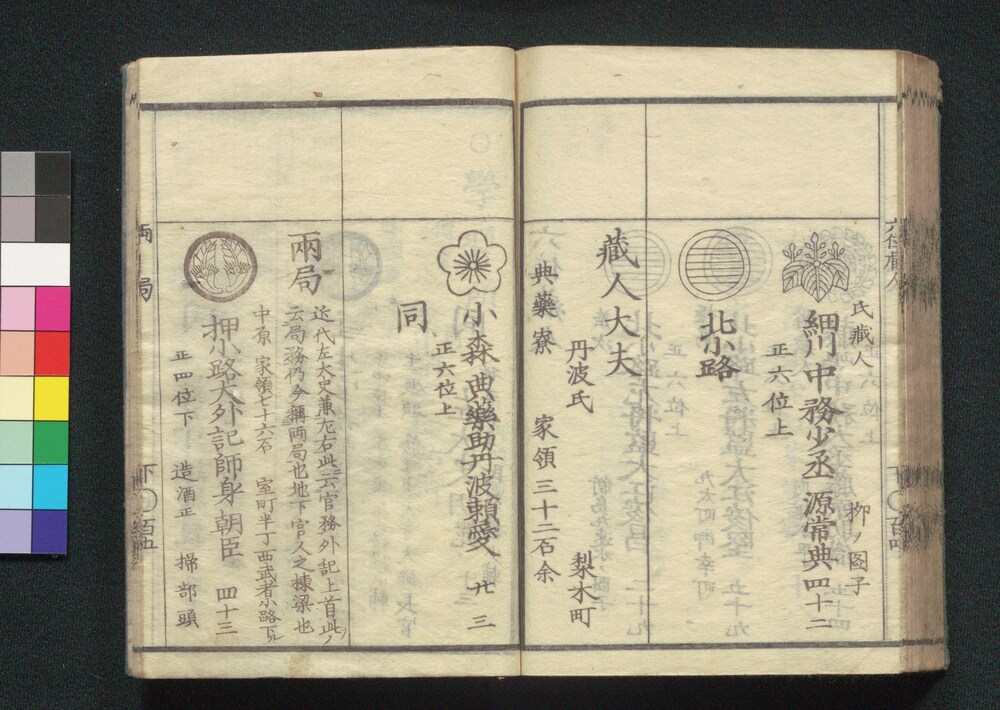 氏藏人　柳ノ圖子
細川中務少丞源常典　四十二
正六位上
北小路
藏人大夫
丹波氏　梨木町
典藥寮　家領三十二石余
小森典藥助丹波頼愛　廿三
正六位上
同
兩局
近代左大史兼左右此云官務外記上首此ノ
云局務仍今稱両局也地下官人之棟梁也
中原　家領七十六石　室町半丁西武者小路下ル
押小路大外記師身朝臣　四十三
正四位下　造酒正　掃部頭
両局
下〇百五